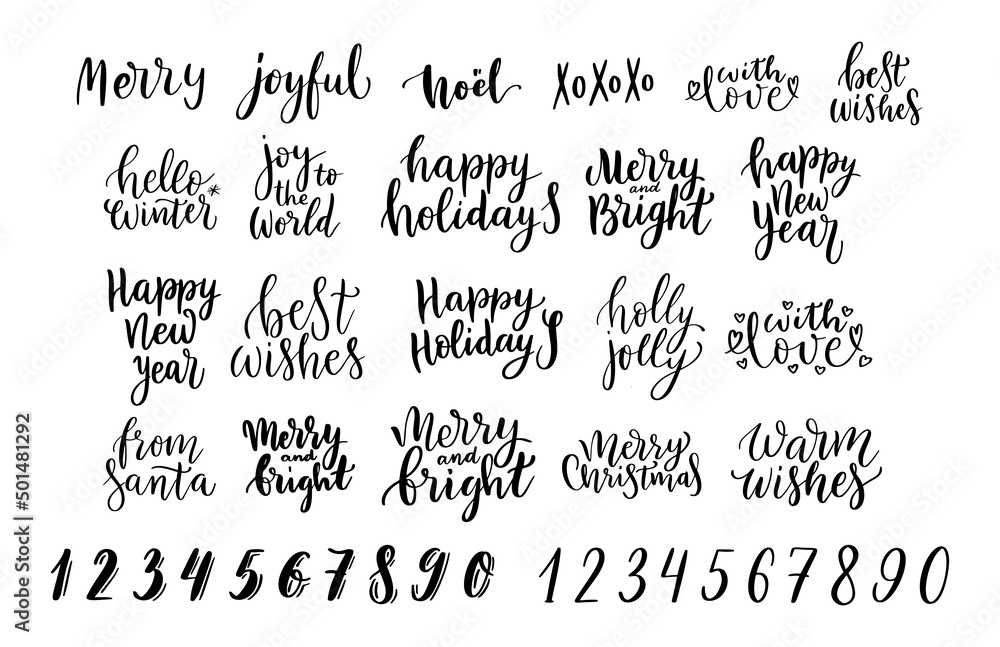 Merry
joyful
Noël
XoXoXo
with
love
best
wishes
hello
winter
joy to
the
World
happy
holidays
Merry
and
Bright
happy
New
Year
Happy
New
year
best
wishes
Happy
Holidays
holly
jolly
with
love
from
Santa
Merry
and
bright
Merry
and
bright
Merry
Christmas
warm
wishes
1 2 3 4 5 6 7 8 9 0
1 2 3 4 5 6 7 8 9 0
Adobe Stock | #501481292